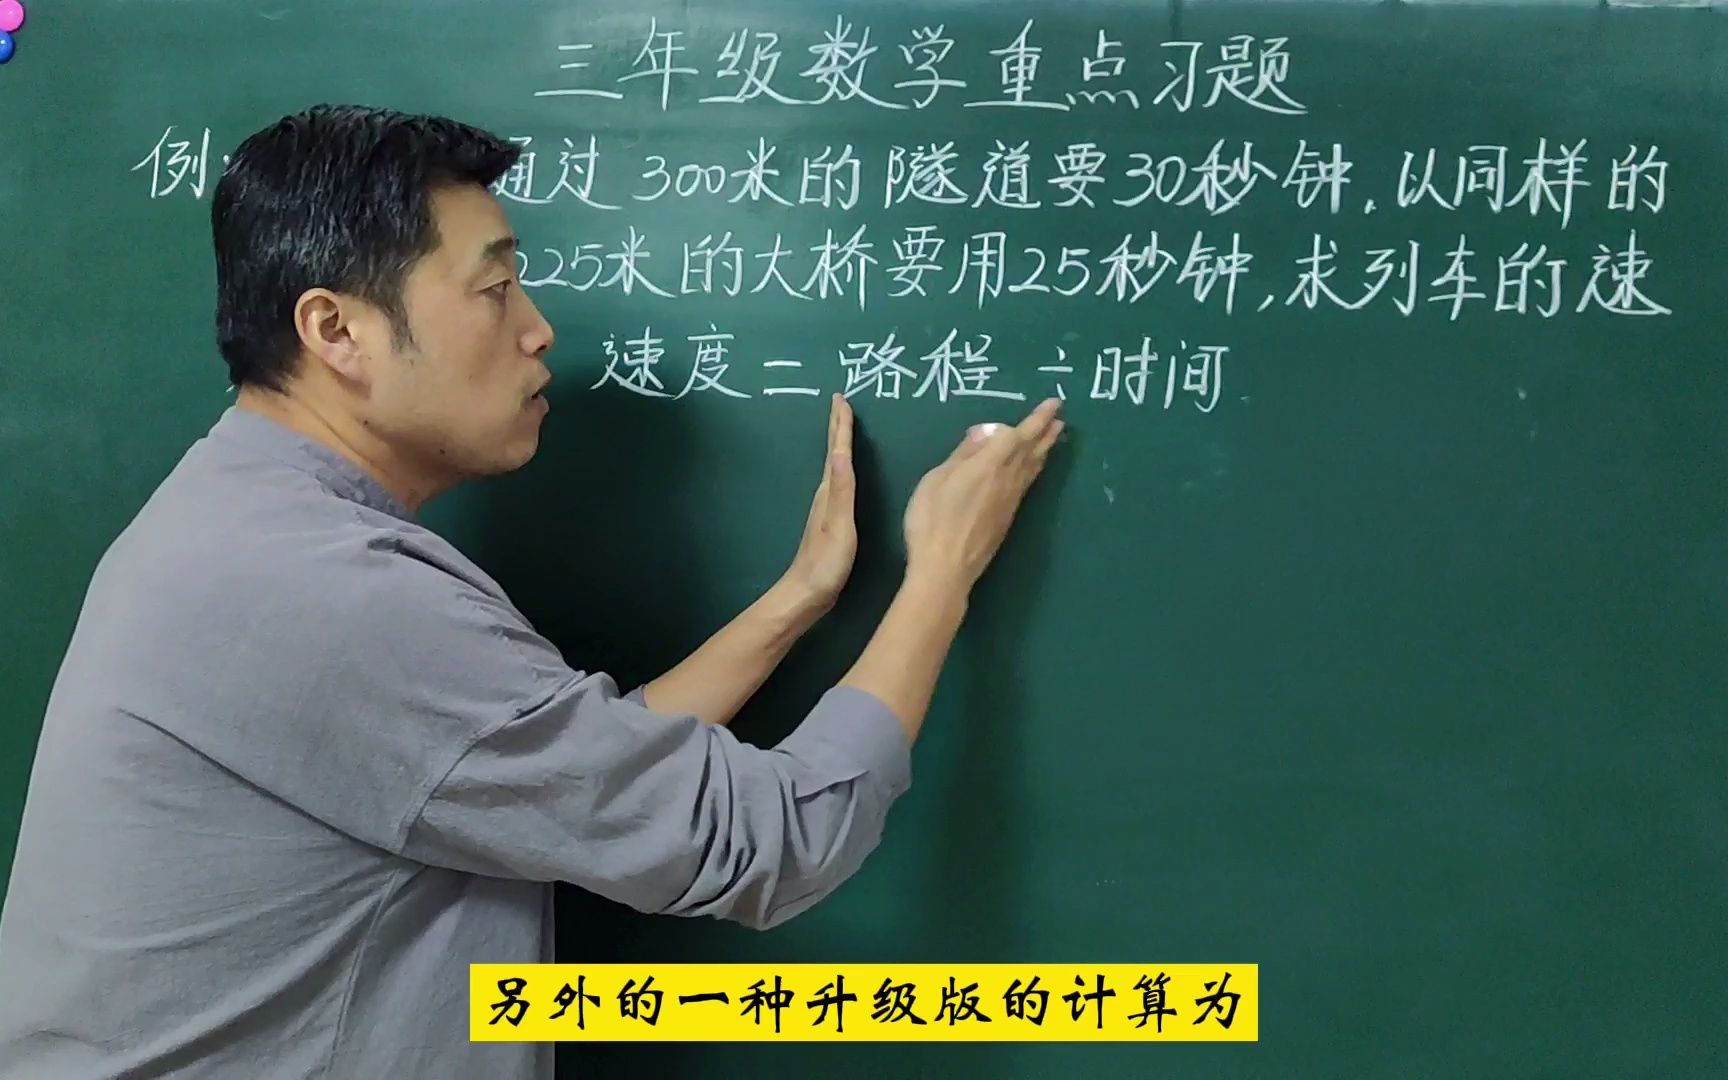 三年级数学重点习题
例
通过300米的隧道要30秒钟,以同样的
225米的大桥要用25秒钟,求列车的速
速度=路程÷时间
另外的一种升级版的计算为